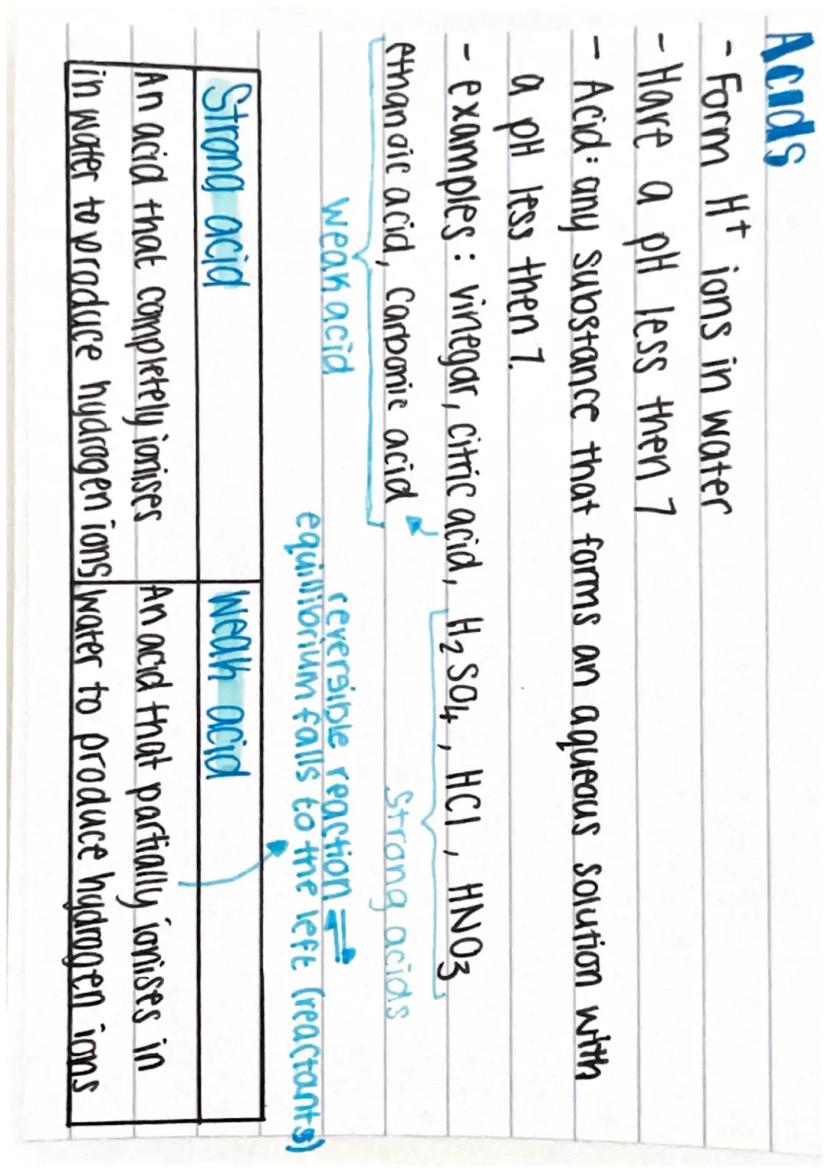 Acids
- Form H⁺ ions in water
- Have a pH less then 7
- Acid: any substance that forms an aqueous solution with
a pH less then 7.
- examples: vinegar, citric acid, H₂SO₄, HCl, HNO₃
ethanoic acid, Carbonic acid
Strong acids
weak acid
reversible reaction ⇌
equillibrium falls to the left (reactants)
Strong acid
weak acid
An acid that completely ionises
in water to produce hydrogen ions
An acid that partially ionises in
water to produce hydrogen ions